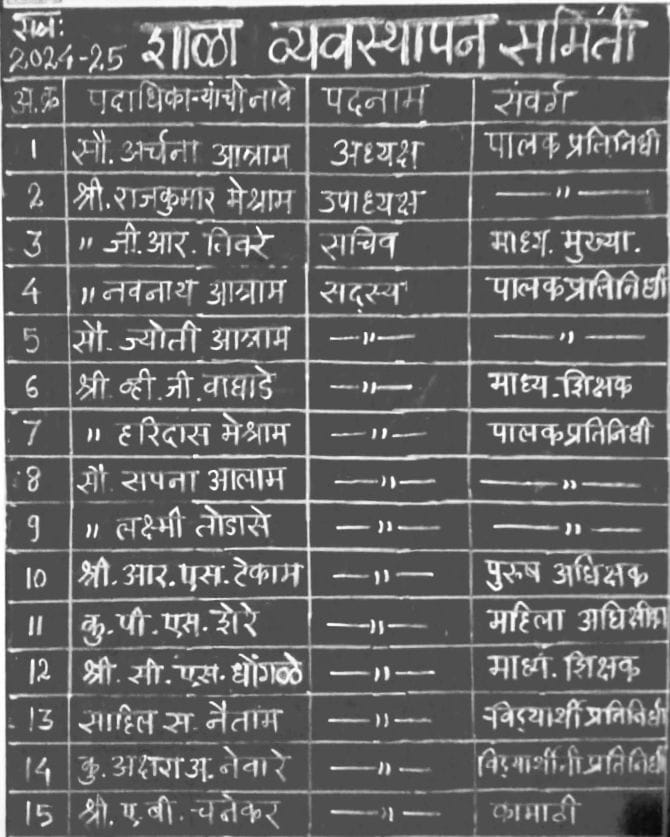 सत्र:
2024-25 शाळा व्यवस्थापन समिती
अ.क्र पदाधिकाऱ्यांची नावे पदनाम संवर्ग
1 सौ. अर्चना आत्राम अध्यक्ष पालक प्रतिनिधी
2 श्री. राजकुमार मेश्राम उपाध्यक्ष —"—
3 " जी. आर. तिवरे सचिव माध्य. मुख्या.
4 " नवनाथ आत्राम सदस्य पालक प्रतिनिधी
5 सौ. ज्योती आत्राम —"— —"—
6 श्री व्ही. जी. वाघाडे —"— माध्य. शिक्षक
7 " हरिदास मेश्राम —"— पालक प्रतिनिधी
8 सौ. सपना आलाम —"— —"—
9 " लक्ष्मी तोडासे —"— —"—
10 श्री. आर. एस. टेकाम —"— पुरुष अधिक्षक
11 कु. पी. एस. शेरे —"— महिला अधिक्षीका
12 श्री. सी. एस. धोंगळे —"— माध्यं. शिक्षक
13 साहिल स. नैताम —"— विद्यार्थी प्रतिनिधी
14 कु. अक्षरा अ. नेवारे —"— विद्यार्थीनी प्रतिनिधी
15 श्री. ए. बी. चनेकर —"— कामाठी